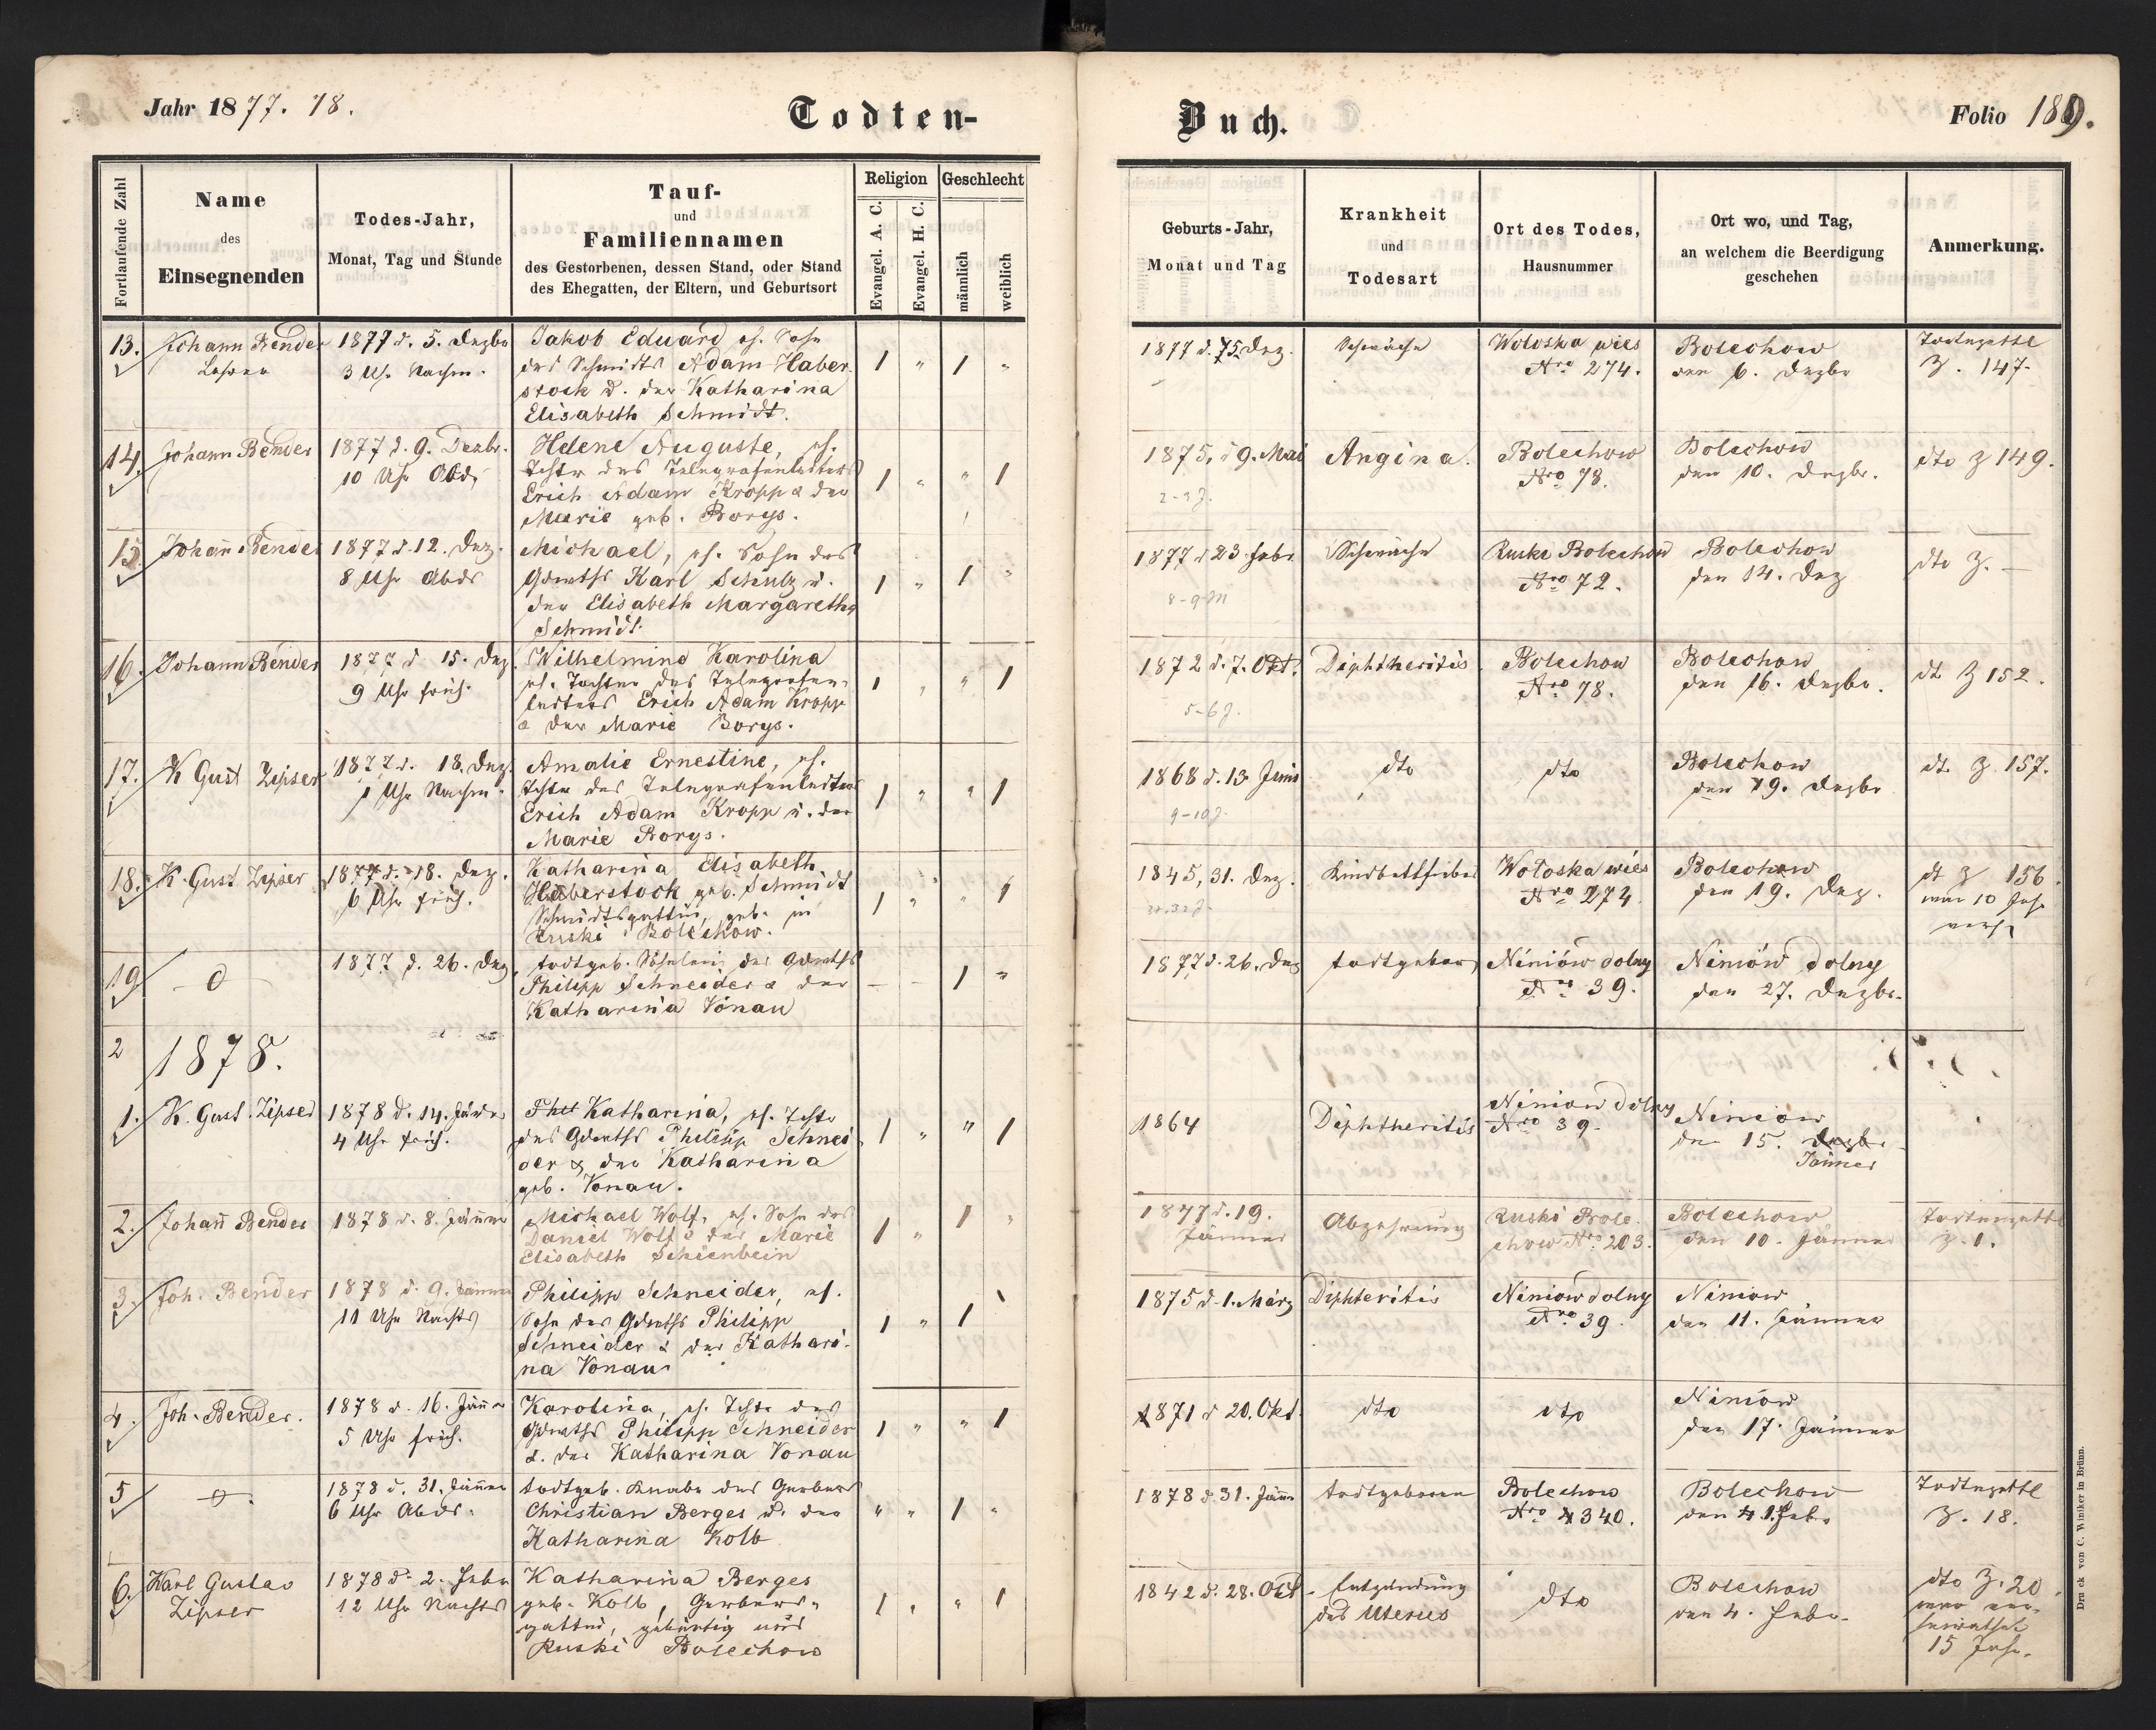 Jahr 1877. 78.
Todten-
Buch.
Folio 189.
Fortlaufende Zahl
Name
des
Einsegnenden
Todes-Jahr,
Monat, Tag und Stunde
Tauf-
und
Familiennamen
des Gestorbenen, dessen Stand, oder Stand
des Ehegatten, der Eltern, und Geburtsort
Religion
Evangel. A. C.
Evangel. H. C.
Geschlecht
männlich
weiblich
Geburts-Jahr,
Monat und Tag
Krankheit
und
Todesart
Ort des Todes,
Hausnummer
Ort wo, und Tag,
an welchem die Beerdigung
geschehen
Anmerkung.
13.
Johann Bender
Lehrer
1877 d. 5. Dezbr
3 Uhr Nachm.
Jakob Eduard eh. Sohn
des Schmidts Adam Haber
stock u. der Katharina
Elisabeth Schmidt.
1 " 1 "
1877 d. 5. Dez.
Schwäche
Woloska wies
Nro 274.
Bolechow
den 6. Dezbr
Todtenzettl
Z. 147.
14.
Johann Bender
1877 d. 9. Dezbr.
10 Uhr Abds
Helene Auguste, eh.
Tochter des Telegrafenleiters
Erich Adam Kropp & der
Marie geb. Borys.
1 " " 1
1875, d 9. Mai
2-3 J.
Angina.
Bolechow
Nro 78.
Bolechow
den 10. Dezbr.
dto Z 149.
15.
Johan̄ Bender
1877 d. 12. Dez.
8 Uhr Abds
Michael, eh. Sohn des
Grundwths Karl Schulz u.
der Elisabeth Margaretha
Schmidt.
1 " 1 "
1877 d 23 Febr.
8-9 M
Schwäche
Ruski Bolechow
Nro 72.
Bolechow
den 14. Dez
dto Z. —
16.
Johann Bender
1877 d 15. Dez.
9 Uhr früh.
Wilhelmine Karolina
eh. Tochter des Telegrafen-
leiters Erich Adam Kropp
& der Marie Borys.
1 " " 1
1872 d. 7. Okt.
5-6 J.
Diphtheritis
Bolechow
Nro 78.
Bolechow
den 16. Dezbr.
dt Z 152.
17.
K Gust Zipser
1877 d. 18. Dez.
1 Uhr Nachm.
Amalie Ernestine, eh.
Tochter des Telegrafenleiters
Erich Adam Kropp u. der
Marie Borys.
1 " " 1
1868 d. 13 Juni
9-10 J.
dto
dto
Bolechow
den 19. Dezbr
dt. Z. 157.
18.
K. Gust Zipser
1877 d. 18. Dez.
6 Uhr früh.
Katharina Elisabeth
Haberstock geb. Schmidt
Schmidtsgattin, geb. in
Ruski Bolechow.
1 " " 1
1845, 31. Dez.
Kindbettfieber
Woloska wies
Nro 274
Bolechow
den 19. Dez.
dt Z 156.
war 10 Jahr
verh
19
—0—
1877 d. 26. Dez.
todtgeb. Söhnlein des Grundwths
Philipp Schneider & der
Katharina Vonau
— — 1 "
1877 d. 26. Dez
todtgeboren
Niniów dolny
Nro 39.
Niniów dolny
den 27. Dezbr.
2
1878.
1.
K. Gust. Zipser
1878 d. 14. Jänner
4 Uhr früh.
Katharina, eh. Tochter
des Grundwths Philipp Schnei
der & der Katharina
geb. Vonau.
1 " " 1
1864
Diphtheritis
Niniow dolny
Nro 39.
Niniow
den 15. Dezbr.
Jänner
2.
Johan̄ Bender
1878 d. 8. Jänner
Michael Wolf, eh. Sohn des
Daniel Wolf & der Marie
Elisabeth Schienbein
1 " 1 "
1877 d. 19.
Jänner
Abzehrung
Ruski Bole
chow Nro 203.
Bolechow
den 10. Jänner
Todtenzettl
Z. 1.
3.
Joh. Bender
1878 d. 9. Jänner
11 Uhr Nachts
Philipp Schneider, eh.
Sohn des Grundwths Philipp
Schneider & der Kathari-
na Vonau
1 " 1
1875 d. 1. März
Diphteritis
Niniow dolny
Nro 39
Niniow
den 11. Jänner
4.
Joh. Bender.
1878 d. 16. Jänner
5 Uhr früh.
Karolina, eh. Tochter des
Grundwths Philipp Schneider
& der Katharina Vonau
1 " " 1
1871 d 20. Okt.
dto
dto
Niniow
den 17. Jänner
5
—0—
1878 d. 31. Jänner
6 Uhr Abds.
todtgeb. Knabe des Gerbers
Christian Berges u. der
Katharina Kolb
" " 1 "
1878 d. 31. Jänn
todtgeboren
Bolechow
Nro 340.
Bolechow
den 1. Febr.
Todtenzettl
Z. 18.
6.
Karl Gustav
Zipser
1878 d. 2. Febr
12 Uhr Nachts
Katharina Berges
geb. Kolb, Gerbers-
gattin, gebürtig aus
Ruski Bolechow
1 " " 1
1842 d. 28. Okt.
Entzündung
des Uterus
dto
Bolechow
den 4. Febr.
dto Z. 20
war ver-
heirathet
15 Jahr.
Druck von C. Winiker in Brünn.